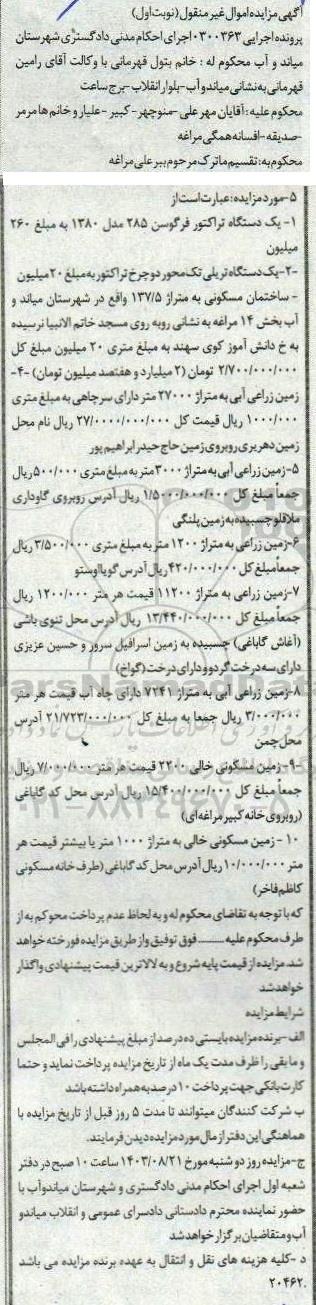 آگهی مزایده اموال غیر منقول (نوبت اول)
پرونده اجرایی ۰۳۰۰۳۶۳ اجرای احکام مدنی دادگستری شهرستان
میاند و آب محکوم له : خانم بتول قهرمانی با وکالت آقای رامین
قهرمانی به نشانی میاندوآب-بلوار انقلاب-برج ساعت
محکوم علیه: آقایان مهر علی -منوچهر- کبیر -علیار و خانم ها مرمر
-صدیقه -افسانه همگی مراغه
محکوم به: تقسیم ماترک مرحوم ببر علی مراغه
۵-مورد مزایده: عبارت است از
۱- یک دستگاه تراکتور فرگوسن ۲۸۵ مدل ۱۳۸۰ به مبلغ ۲۶۰
میلیون
۲-یک دستگاه تریلی تک محور دو چرخ تراکتور به مبلغ ۲۰میلیون
- ساختمان مسکونی به متراژ ۱۳۷/۵ واقع در شهرستان میاند و
آب بخش ۱۴ مراغه به نشانی روبه روی مسجد خاتم الانبیا نرسیده
به خ دانش آموز کوی سهند به مبلغ متری ۲۰ میلیون مبلغ کل
۲/۷۰۰/۰۰۰/۰۰۰ تومان (۲ میلیارد و هفتصد میلیون تومان) -۴-
زمین زراعی آبی به متراژ ۲۷۰۰۰ متر دارای سر چاهی به مبلغ متری
۱/۰۰۰/۰۰۰ ریال قیمت کل ۲۷/۰۰۰۰/۰۰۰/۰۰۰ ریال نام محل
زمین دهریری روبروی زمین حاج حیدر ابراهیم پور
۵-زمین زراعی آبی به متراژ ۳۰۰۰ متر به مبلغ متری ۵۰۰/۰۰۰ ریال
جمعاً مبلغ کل ۱/۵۰۰۰/۰۰۰/۰۰۰ ریال آدرس روبروی گاوداری
ملاقلو چسبیده به زمین پلنگی
۶-زمین زراعی به متراژ ۱۲۰۰ متر به مبلغ متری ۳/۵۰۰/۰۰۰ ریال
جمعاً مبلغ کل ۴۲۰/۰۰۰/۰۰۰ ریال آدرس گویا اوستو
۷-زمین زراعی به متراژ ۱۱۲۰۰ قیمت هر متر ۱۲۰۰/۰۰۰ ریال
جمعاً مبلغ کل ۱۳/۴۴۰/۰۰۰/۰۰۰ ریال آدرس محل تنوی باشی
(آغاش گاباغی) چسبیده به زمین اسرافیل سرور و حسین عزیزی
دارای سه درخت گردو و دارای درخت (گواخ)
۸-زمین زراعی آبی به متراژ ۷۲۴۱ دارای چاه آب قیمت هر متر
۳/۰۰۰/۰۰۰ ریال جمعا به مبلغ کل ۲۱/۷۲۳/۰۰۰/۰۰۰ آدرس
محل چمن
۹-زمین مسکونی خالی ۲۲۰۰ قیمت هر متر ۷/۰۰۰/۰۰۰ ریال
جمعاً مبلغ کل ۱۵/۴۰۰/۰۰۰/۰۰۰ ریال آدرس محل کد گاباغی
(روبروی خانه کبیر مراغه ای)
۱۰ - زمین مسکونی خالی به متراژ ۱۰۰۰ متر یا بیشتر قیمت هر
متر ۱۰/۰۰۰/۰۰۰ ریال آدرس محل کد گاباغی (طرف خانه مسکونی
کاظم فاخر)
که با توجه به تقاضای محکوم له و به لحاظ عدم پرداخت محوکم به از
طرف محکوم علیه ـــــــ فوق توفیق واز طریق مزایده فورخته خواهد
شد. مزایده از قیمت پایه شروع و به لالاترین قیمت پیشنهادی واگذار
خواهد شد
شرایط مزایده
الف-برنده مزایده بایستی ده درصد از مبلغ پیشنهادی را فی المجلس
و ما بقی را ظرف مدت یک ماه از تاریخ مزایده پرداخت نماید و حتما
کارت بانکی جهت پرداخت ۱۰ درصد به همراه داشته باشد
ب شرکت کنندگان میتوانند تا مدت ۵ روز قبل از تاریخ مزایده با
هماهنگی این دفتر از مال مورد مزایده دیدن فرمایند.
ج-مزایده روز دو شنبه مورخ ۱۴۰۳/۰۸/۲۱ ساعت ۱۰ صبح در دفتر
شعبه اول اجرای احکام مدنی دادگستری و شهرستان میاندوآب با
حضور نماینده محترم دادستانی دادسرای عمومی و انقلاب میاندو
آب و متقاضیان برگزار خواهد شد
د -کلیه هزینه های نقل و انتقال به عهده برنده مزایده می باشد
.۲۰۴۶۲